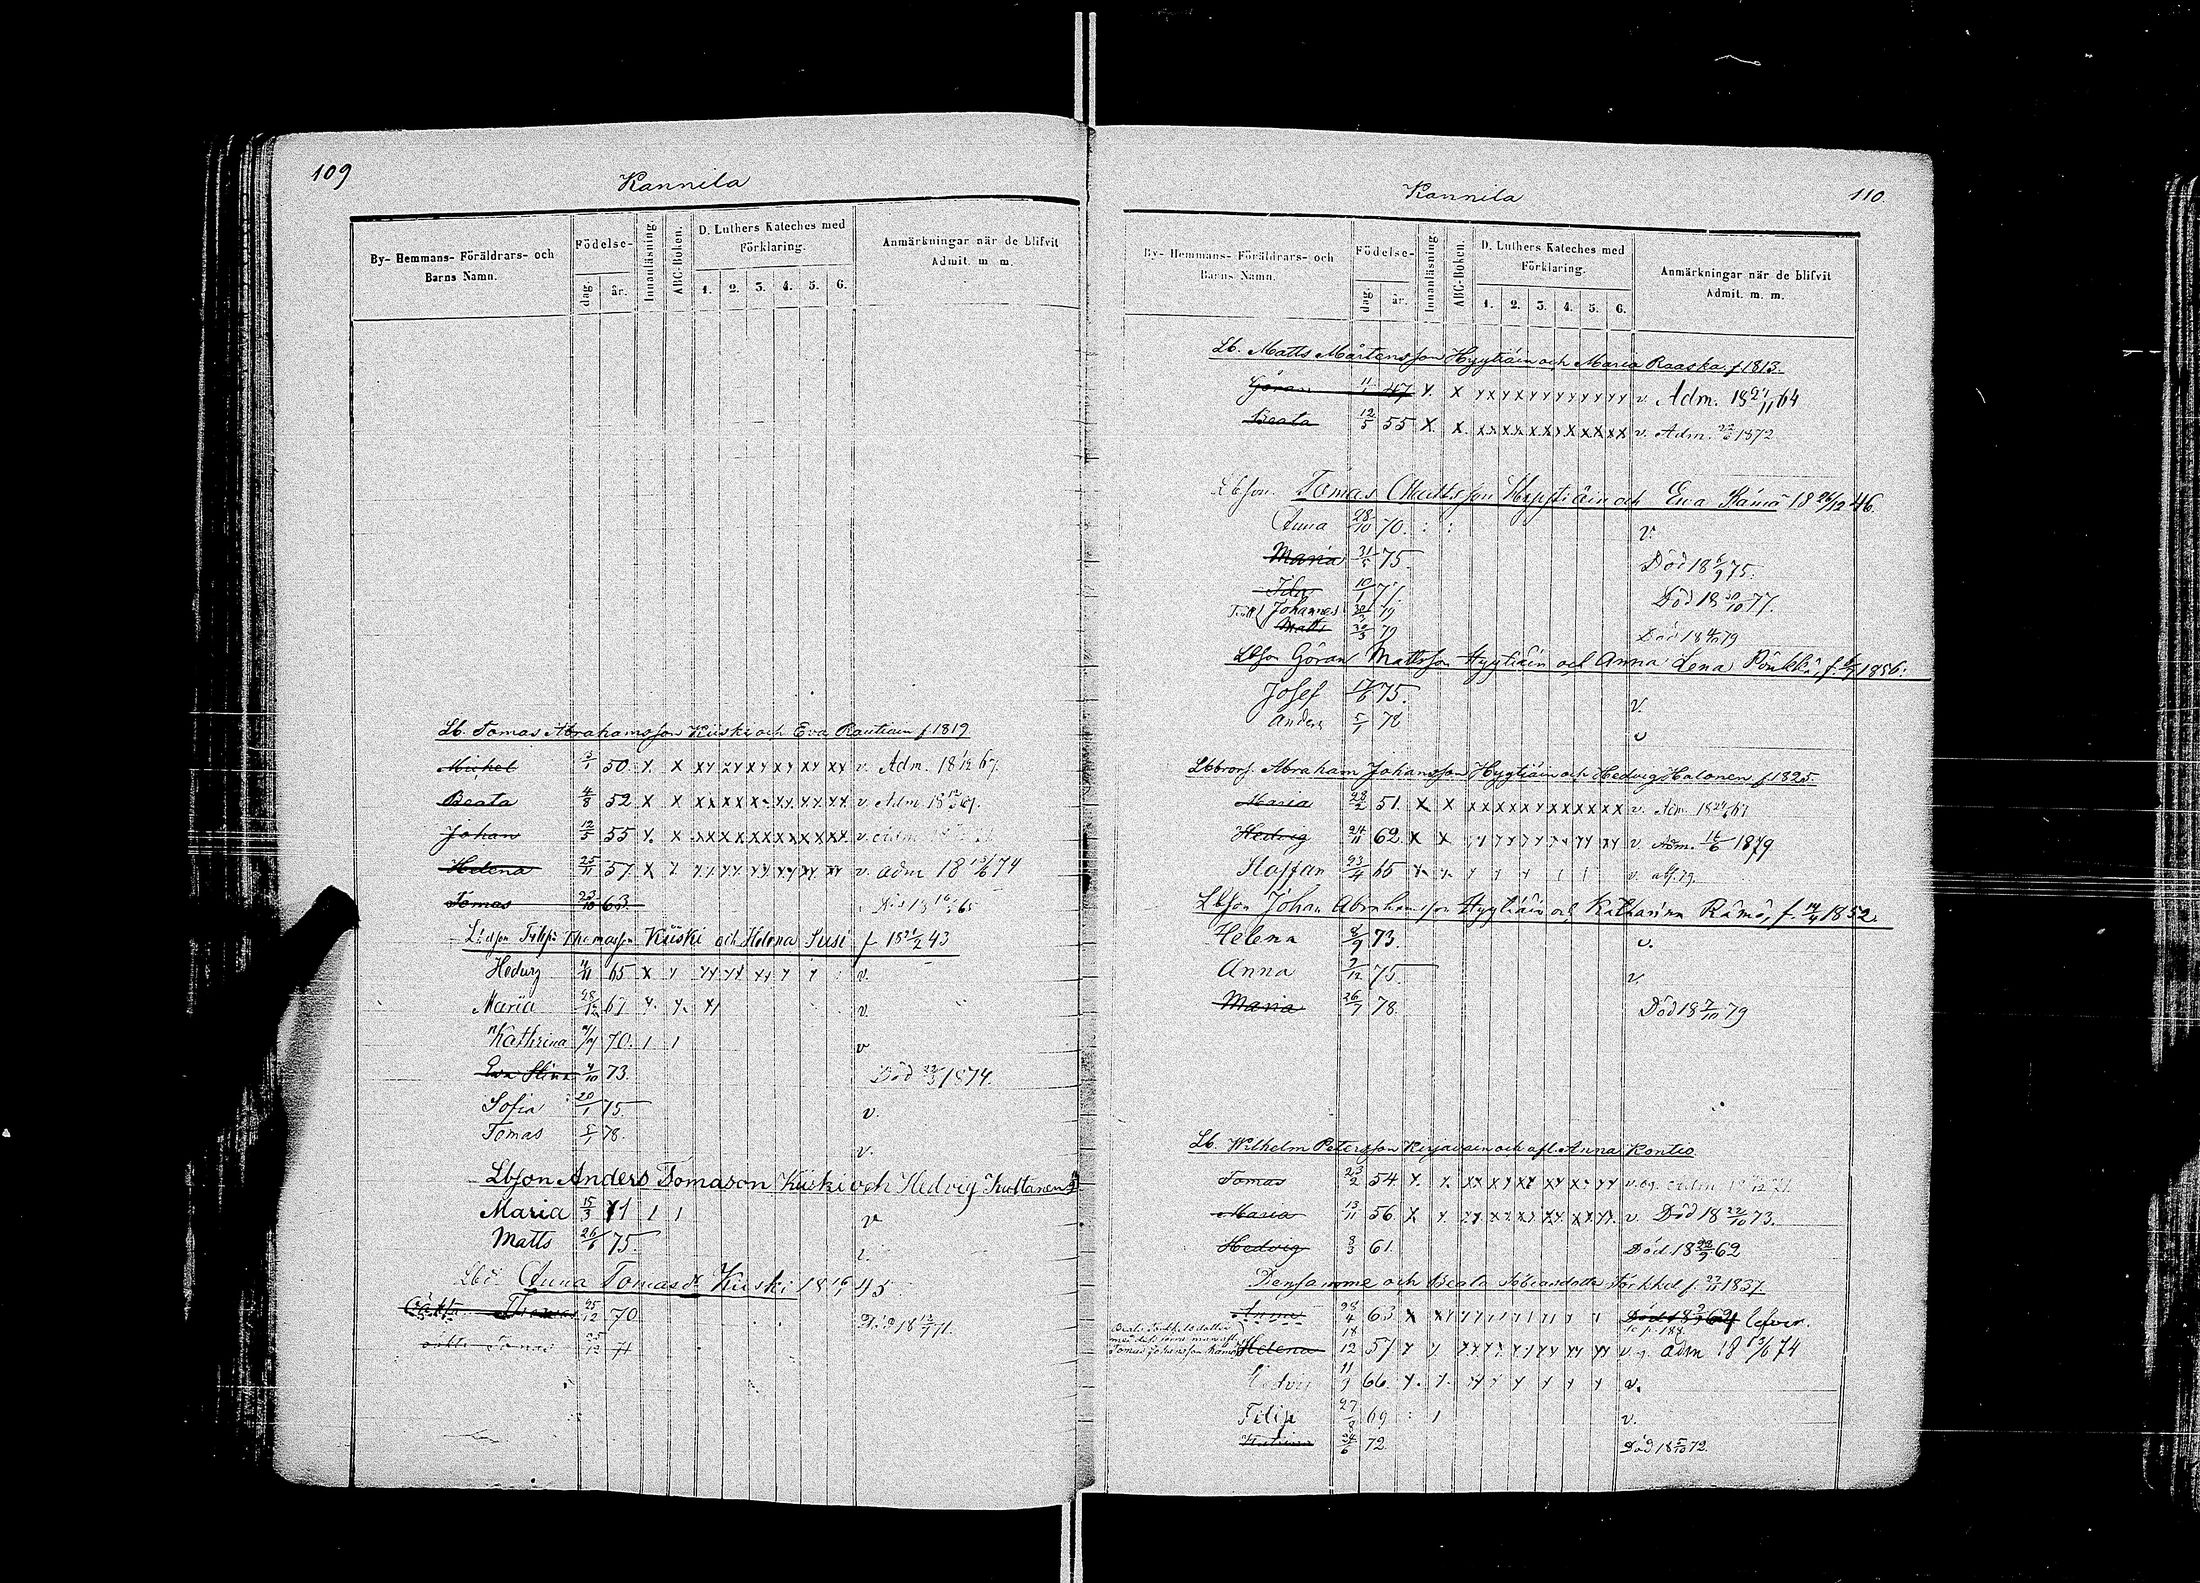 109
Kannila
By- Hemmans- Föräldrars- och Barns Namn.
Födelse-
dag
år.
Innanläsning.
ABC-Boken.
D. Luthers Kateches med Förklaring.
1. 2. 3. 4. 5. 6.
Anmärkningar när de blifvit Admit. m. m.
Lb. Tomas Abrahamsson Kiiski och Eva Rautiain f 1819
Michel 3/1 50. x x xx xx xx xx xx xx v. Adm. 18 67
Beata 4/8 52 x x xx xx xx xx xx xx v. Adm 18
Johan 12/5 55 x. x xx xx xx xx xx xx. v.
Helena 25/11 57 x x xx xx xx xx xx xx v. adm 18 13/6 74
Tomas 23/10 63. Död 18 65
Lbdson Filip Thomasson Kiiski och Helena Susi f 18 21/2 43
Hedvig 65 x x xx xx xx x x v.
Maria 28/12 67 x. x. x1 v.
Kathrina 70. 1 1 v
Eva Stina 4/10 73. Död 1874.
Sofia 20/1 75 v.
Tomas 5/1 78. v.
Lbson Anders Tomason Kiiski och Hedvig Kultanen
Maria 15/3 71 1 1 v
Matts 26/6 75. v.
Lbd. Anna Tomasdr Kiiski 18 45
Oäkta Thomas 25/12 70 Död 18 71.
oäkta Tomas 25/12 71
Kannila
110
By- Hemmans- Föräldrars- och Barns Namn.
Födelse-
dag
år.
Innanläsning
ABC-Boken.
D. Luthers Kateches med Förklaring.
1. 2. 3. 4. 5. 6.
Anmärkningar när de blifvit Admit. m. m.
Lb. Matts Mårtensson Hyytiäin och Maria Raaska f 1813.
Göran 11/1 47 x. x xx xx xx xx xx xx v. Adm. 18 64
Beata 12/5 55 x. x. xx xx xx xx xx xx v. Adm. 1872
Lbson Tomas Mattsson Hyytiäin och Eva Rämö 18 26/12 46.
Anna 28/10 70. : : v.
Maria 31/5 75. Död 18 6/9 75.
Ida 10/1 77. Död 18 30/10 77.
Tvill { Johannes 79
Matts 79 Död 18 79
Lbson Göran Mattsson Hyytiäin och Anna Lena Pönkkä, f. 1856.
Josef 17/6 75. v.
Anders 5/1 78 v
Lbbrors. Abraham Johansson Hyytiäin och Hedvig Halonen f 1825
Maria 28/2 51. x x xx xx xx xx xx xx v. Adm. 18 67
Hedvig 24/11 62 x x xx xx xx xx xx xx v. Adm. 14/6 1879
Staffan 23/4 65 x. x. x x x 1 1 v. abs. 79.
Lbson Johan Abrahamsson Hyytiäin och Katharina Rämö, f. 14/4 1852.
Helena 8/9 73. v.
Anna 9/12 75. v.
Maria 26/7 78. Död 18 7/10 79
Lb. Wilhelm Petersson Kirjavain och afl. Anna Kontio
Tomas 23/2 54. x. x. xx xx xx xx xx xx
Maria 13/11 56. x x. xx xx xx xx xx xx. v. Död 18 22/10 73.
Hedvig 8/3 61. Död. 18 23/9 62
Densamme och Beata Tobiasdotter Törkkel f. 1837.
Anna 28/4 63 x x1 xx xx x x x x Död 18 64 lefver.
Helena 18/12 57 x x. xx xx xx xx xx xx adm 18 13/6 74
Hedvig 66. x. x. xx x x x x x v.
Filip 27/8 69 : 1 v.
Katrina 24/6 72 Död 18 5/10 72.